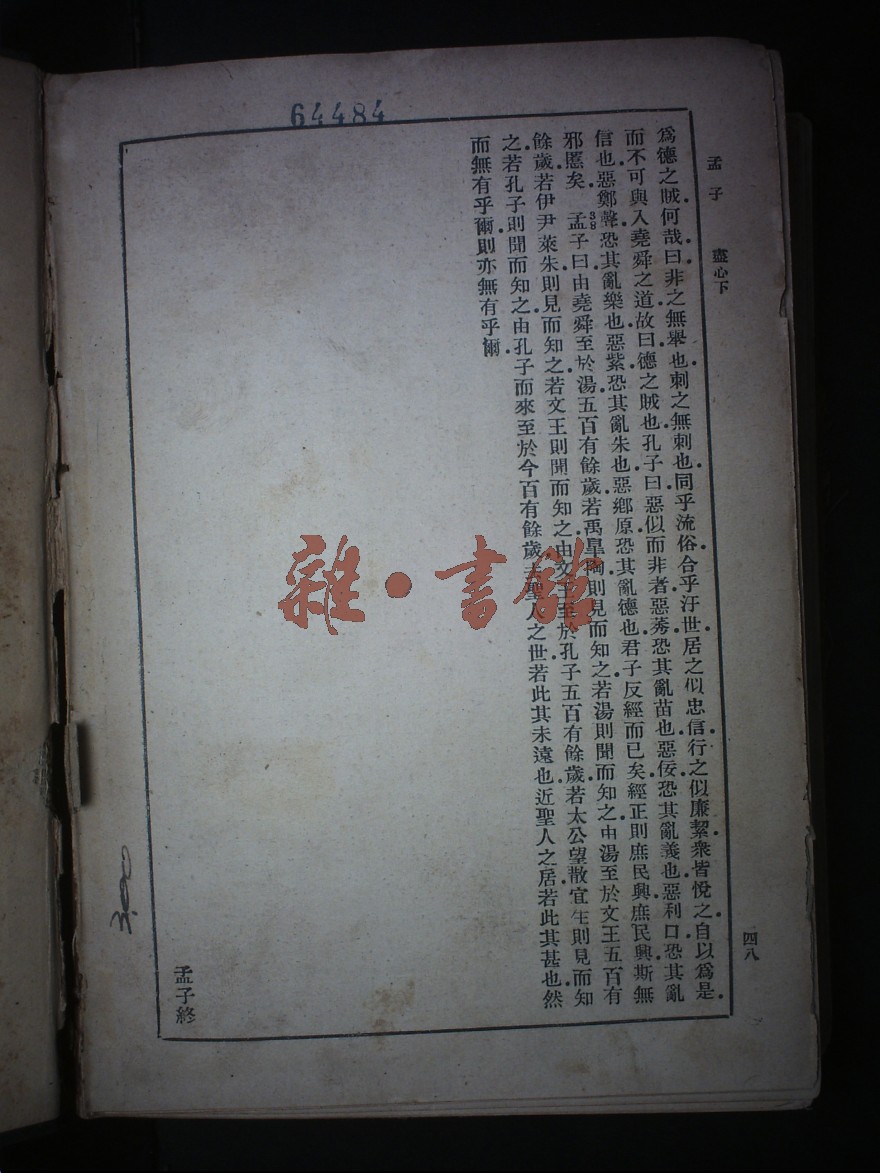 64484
孟子 盡心下 一四八
爲德之賊何哉曰非之無舉也刺之無刺也同乎流俗合乎汙世居之似忠信行之似廉絜衆皆悅之自以爲是
而不可與入堯舜之道故曰德之賊也孔子曰惡似而非者惡莠恐其亂苗也惡佞恐其亂義也惡利口恐其亂
信也惡鄭聲恐其亂樂也惡紫恐其亂朱也惡鄉原恐其亂德也君子反經而已矣經正則庶民興庶民興斯無
邪慝矣 38 孟子曰由堯舜至於湯五百有餘歲若禹皐陶則見而知之若湯則聞而知之由湯至於文王五百有
餘歲若伊尹萊朱則見而知之若文王則聞而知之由文王至於孔子五百有餘歲若太公望散宜生則見而知
之若孔子則聞而知之由孔子而來至於今百有餘歲去聖人之世若此其未遠也近聖人之居若此其甚也然
而無有乎爾則亦無有乎爾
孟子終
雜·書館